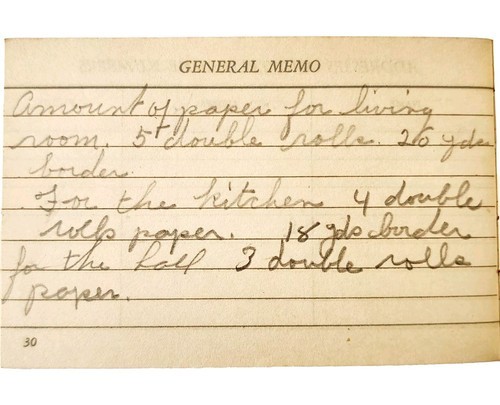 GENERAL MEMO
Amount of paper for living
room. 5 double rolls. 26 yds
border
For the kitchen 4 double
rolls paper. 18 yds border
for the hall 3 double rolls
paper.
30